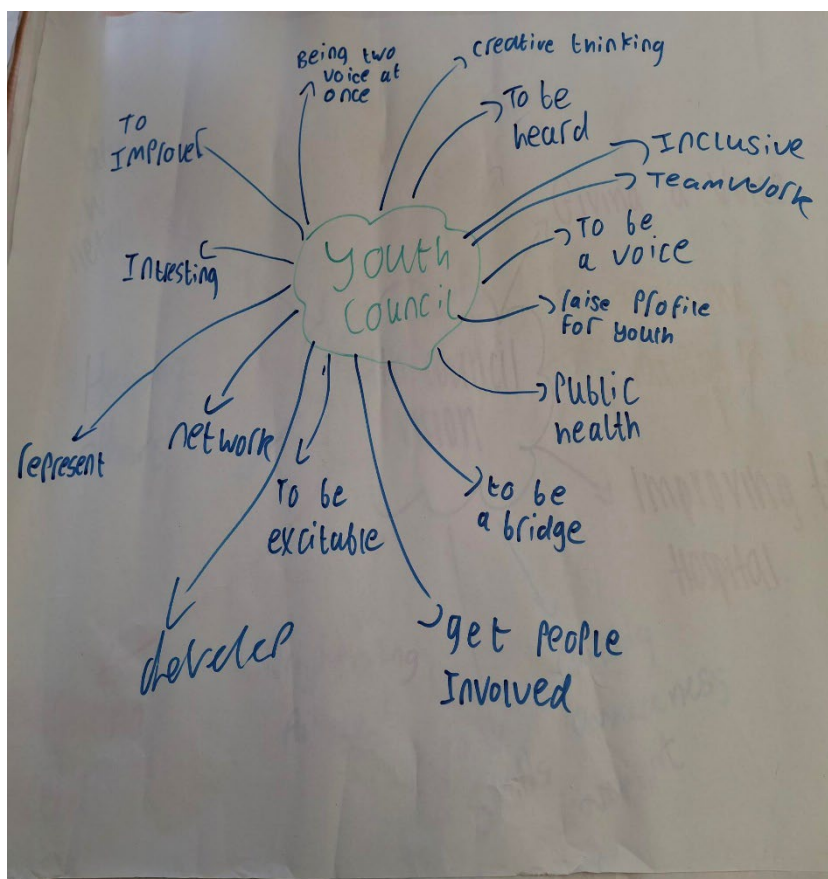 Being two
voice at
once
creative thinking
To be
heard
Inclusive
Teamwork
To be
a voice
raise profile
for youth
Public
health
to be
a bridge
get people
Involved
To be
excitable
develop
network
represent
Intresting
To
Improve
Youth
Council